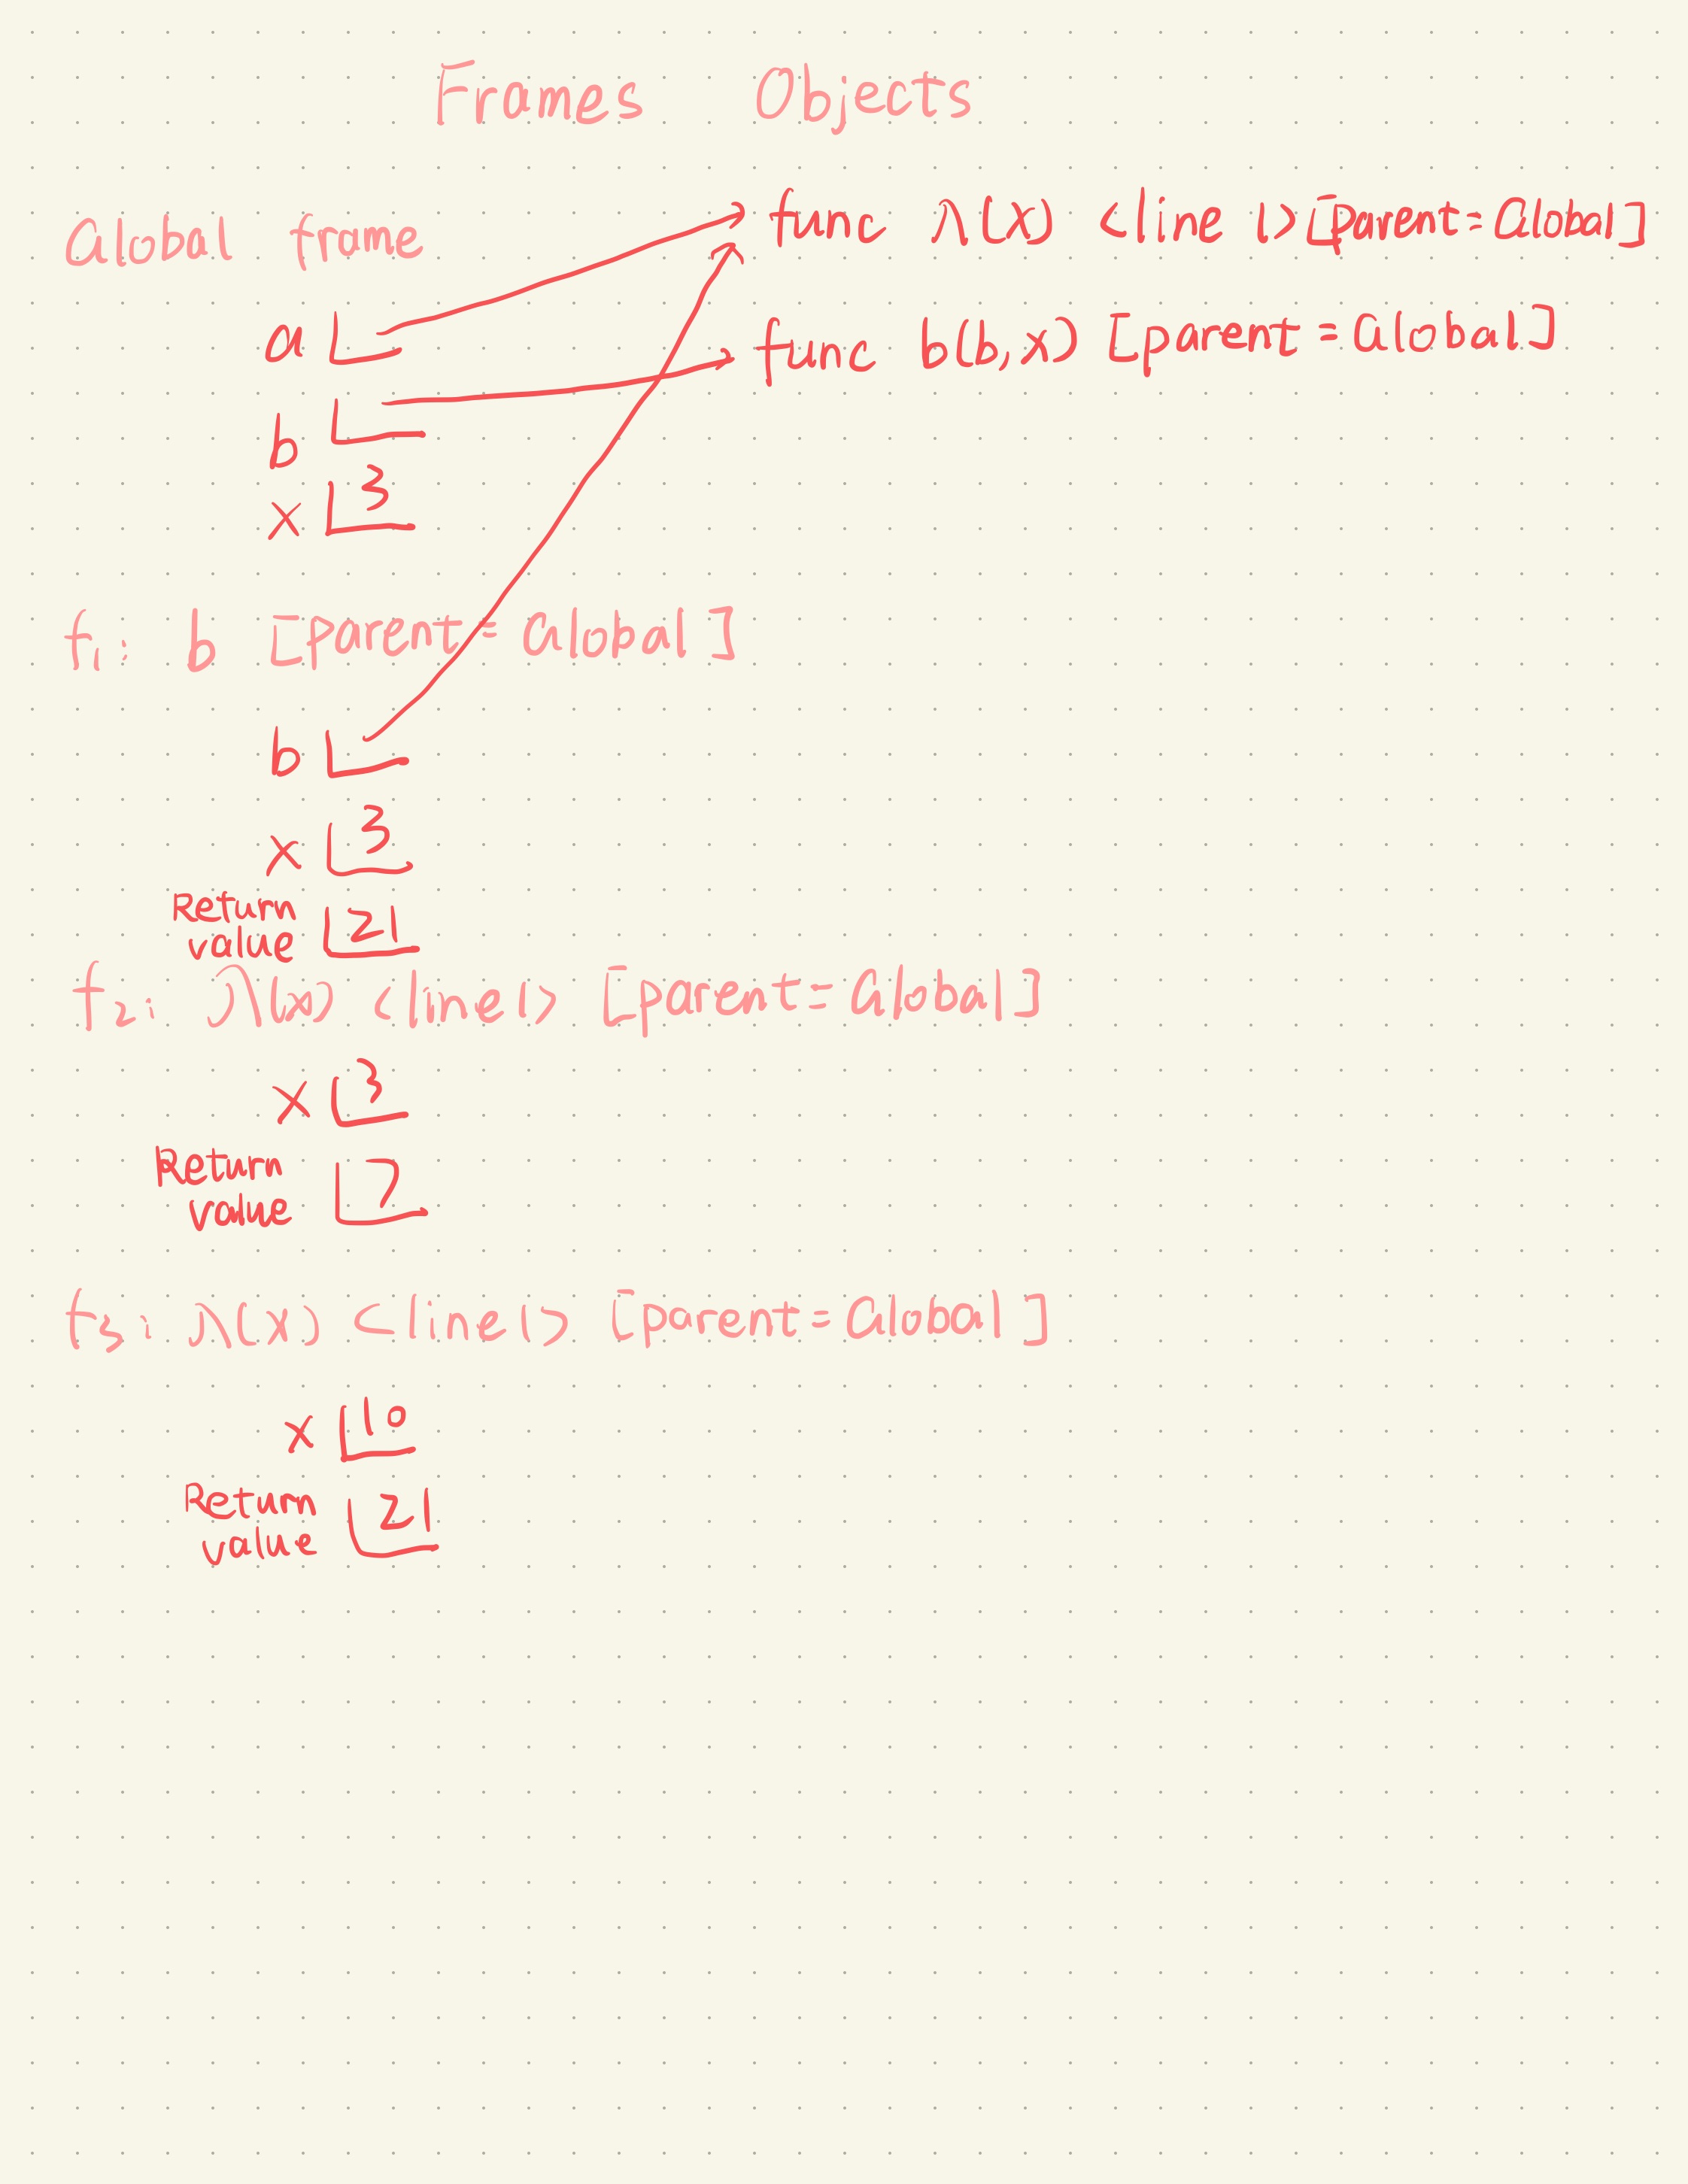 Frames Objects
Global frame
func λ(x) <line 1> [parent=Global]
a
func b(b, x) [parent=Global]
b
x 3
f1: b [parent=Global]
b
x 3
Return value 21
f2: λ(x) <line 1> [parent=Global]
x 3
Return value 7
f3: λ(x) <line 1> [parent=Global]
x 10
Return value 21